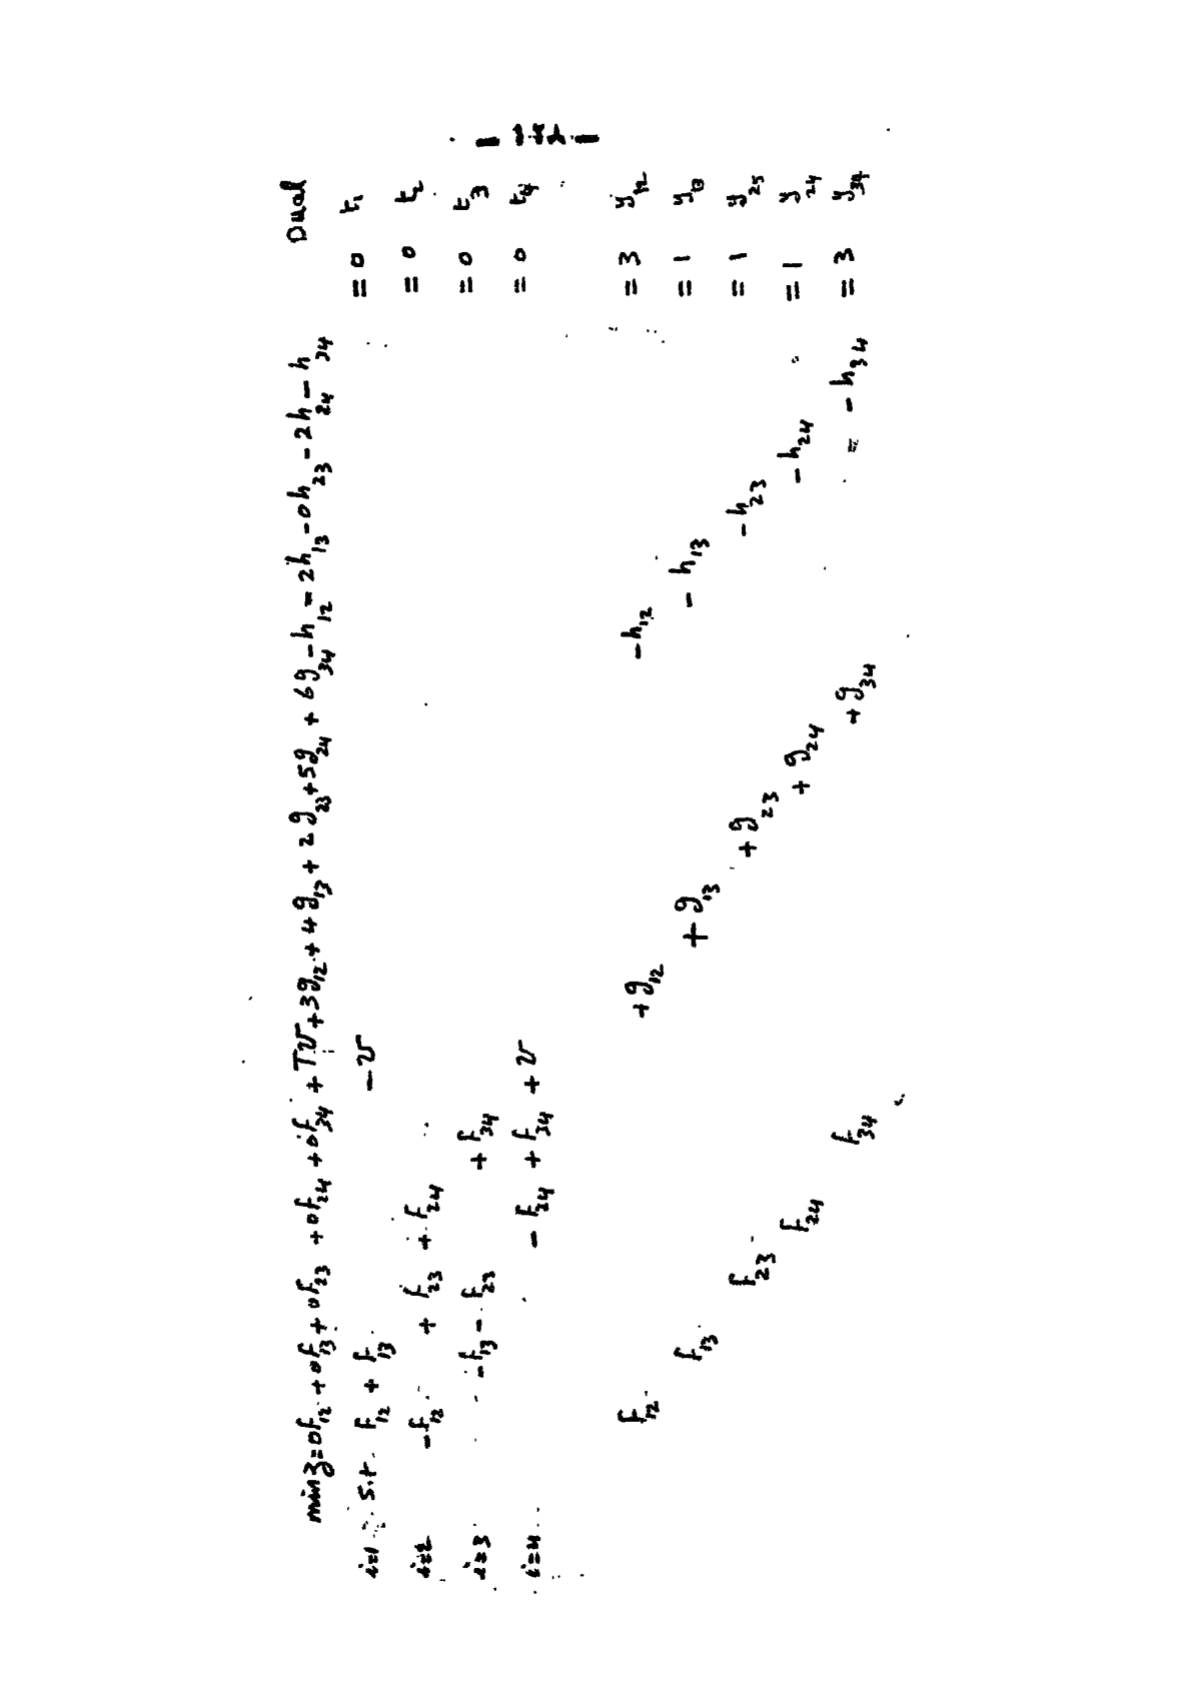 Dual
min z = 0f12 + 0f13 + 0f23 + 0f24 + 0f34 + Tv + 3g12 + 4g13 + 2g23 + 5g24 + 6g34 - h12 - 2h13 - 0h23 - 2h24 - h34
i=1 s.t. f12 + f13 - v = 0 t1
i=2 -f12 + f23 + f24 = 0 t2
i=3 -f13 - f23 + f34 = 0 t3
i=4 - f24 + f34 + v = 0 t4
f12 + g12 - h12 = 3 y12
f13 + g13 - h13 = 1 y13
f23 + g23 - h23 = 1 y25
f24 + g24 - h24 = 1 y24
f34 + g34 - h34 = 3 y34